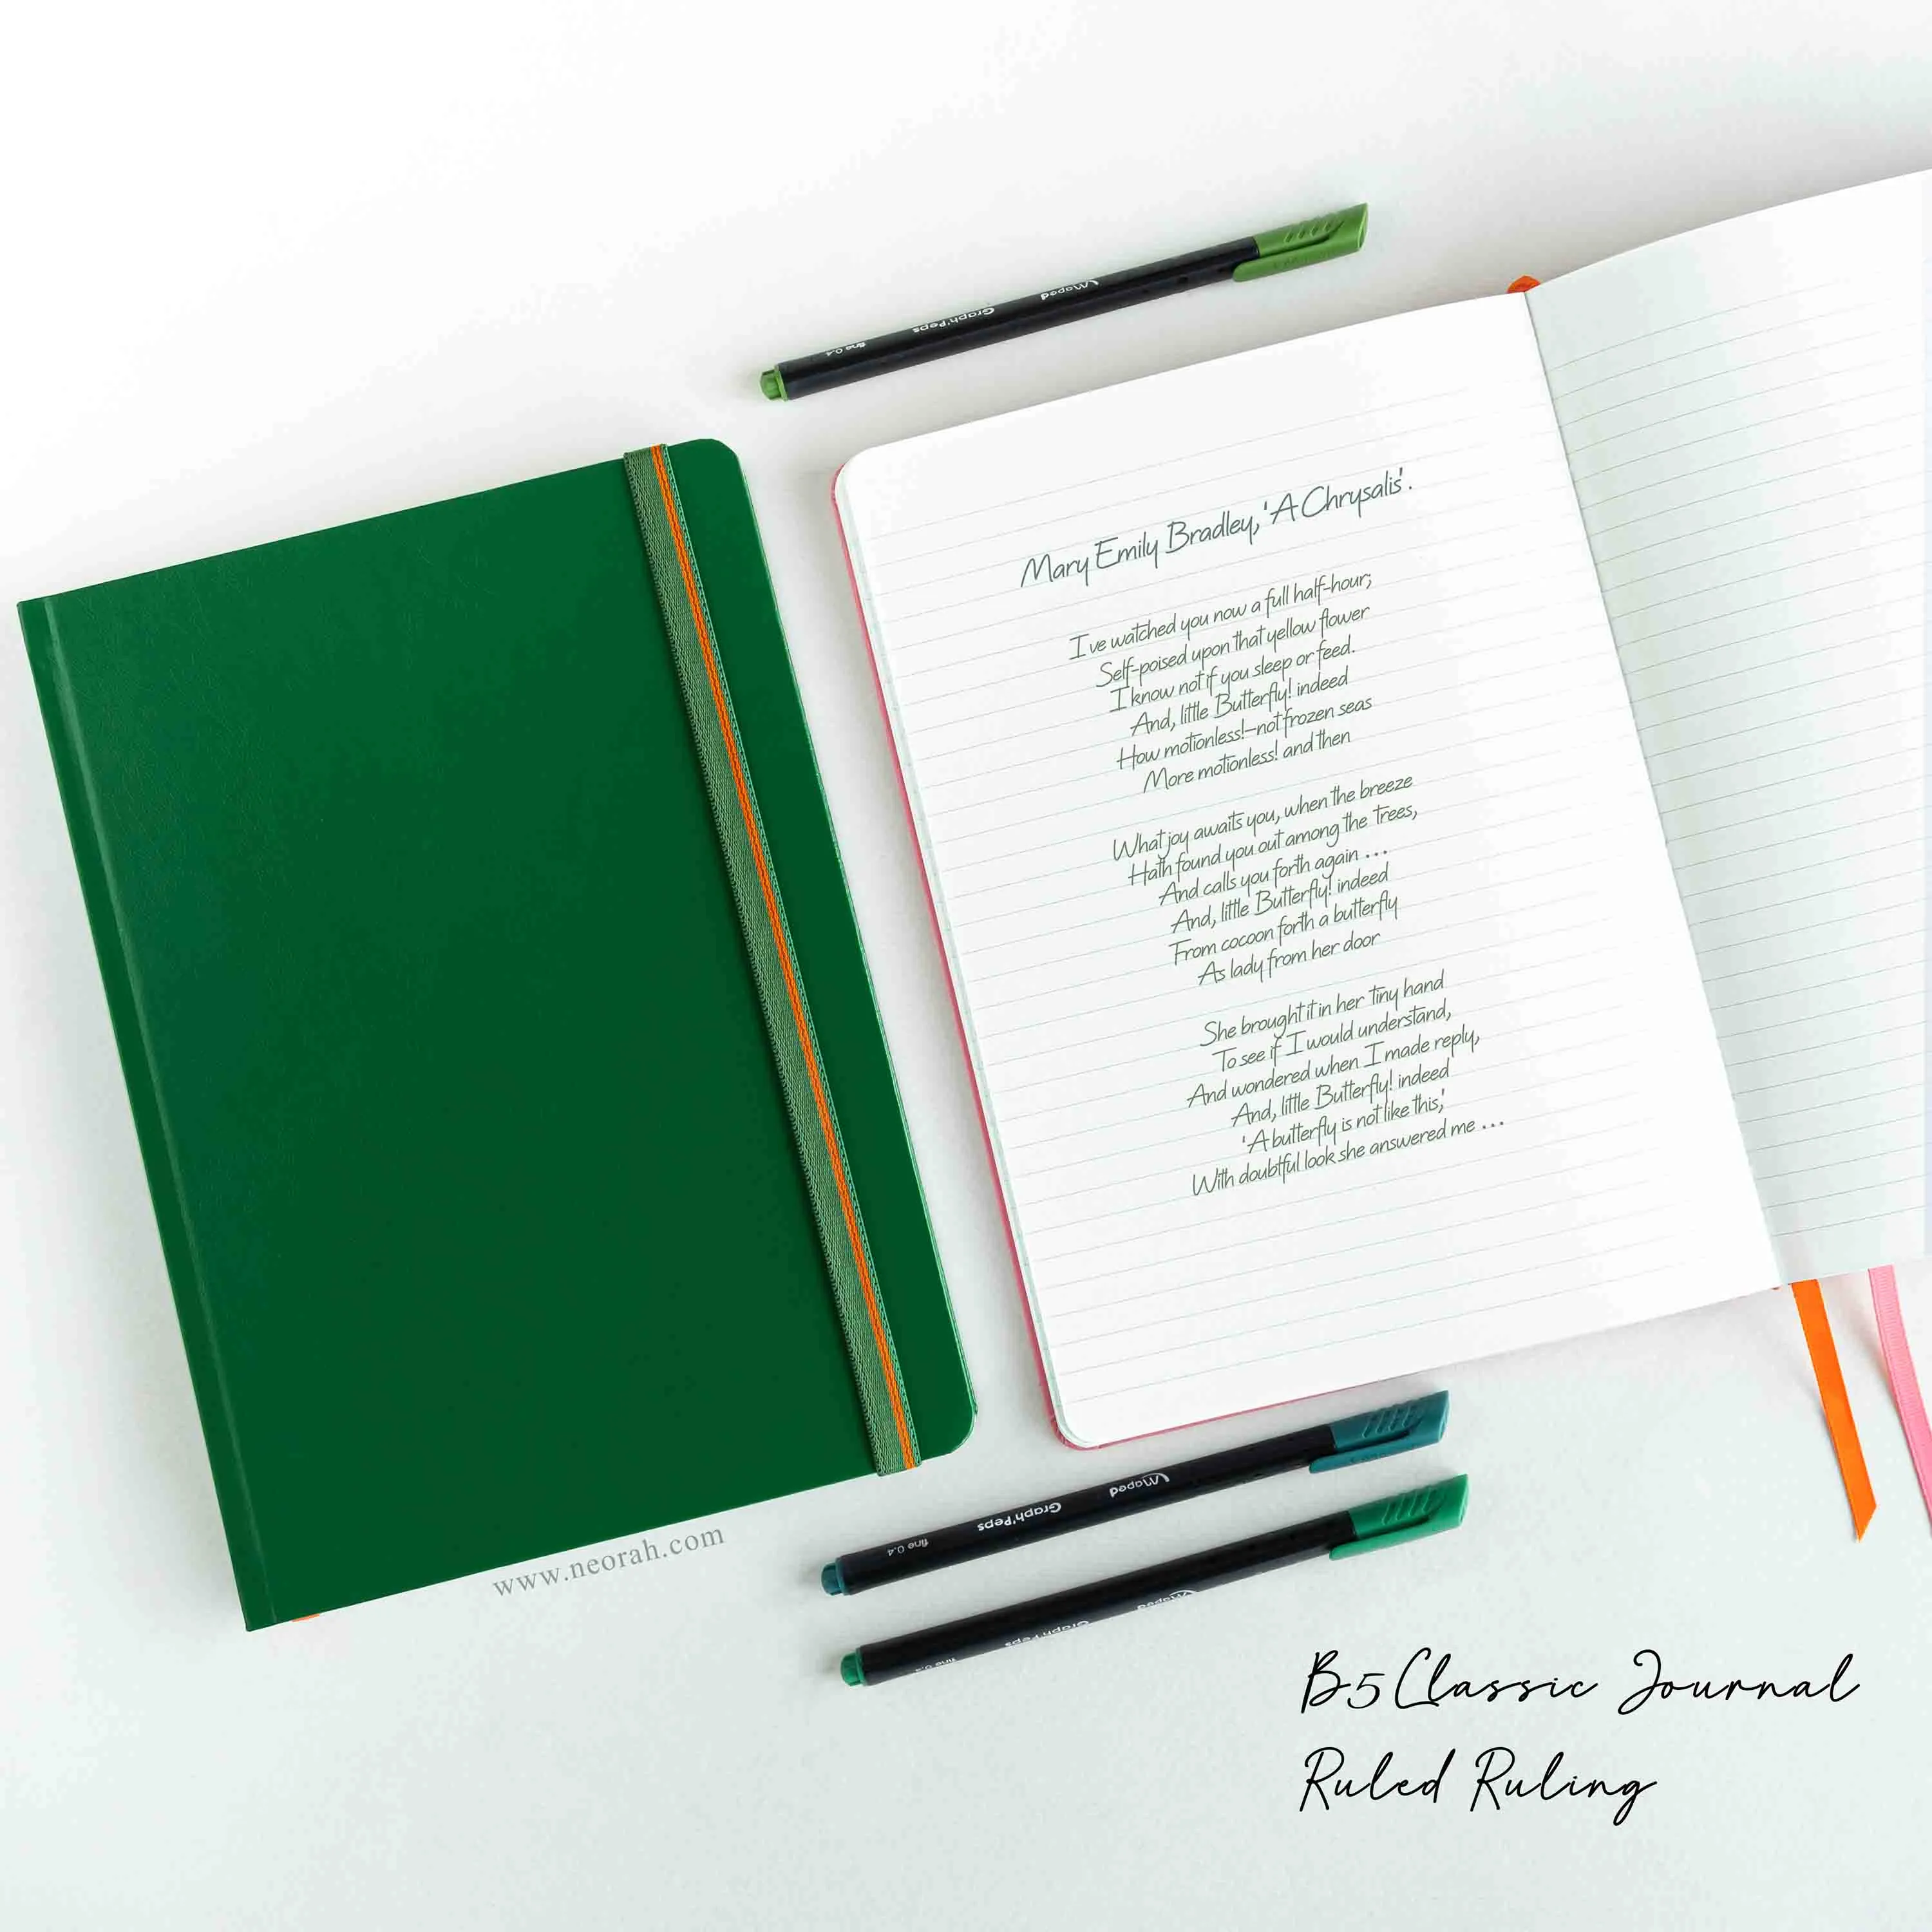 Maped
Graph'Peps
fine 0.4
Mary Emily Bradley, 'A Chrysalis'.
I've watched you now a full half-hour;
Self-poised upon that yellow flower
I know not if you sleep or feed.
And, little Butterfly! indeed
How motionless!—not frozen seas
More motionless! and then
What joy awaits you, when the breeze
Hath found you out among the trees,
And calls you forth again ...
And, little Butterfly! indeed
From cocoon forth a butterfly
As lady from her door
She brought it in her tiny hand
To see if I would understand,
And wondered when I made reply,
And, little Butterfly! indeed
'A butterfly is not like this,'
With doubtful look she answered me ...
Maped
Graph'Peps
fine 0.4
www.neorah.com
Maped
Graph'Peps
fine 0.4
B5 Classic Journal
Ruled Ruling